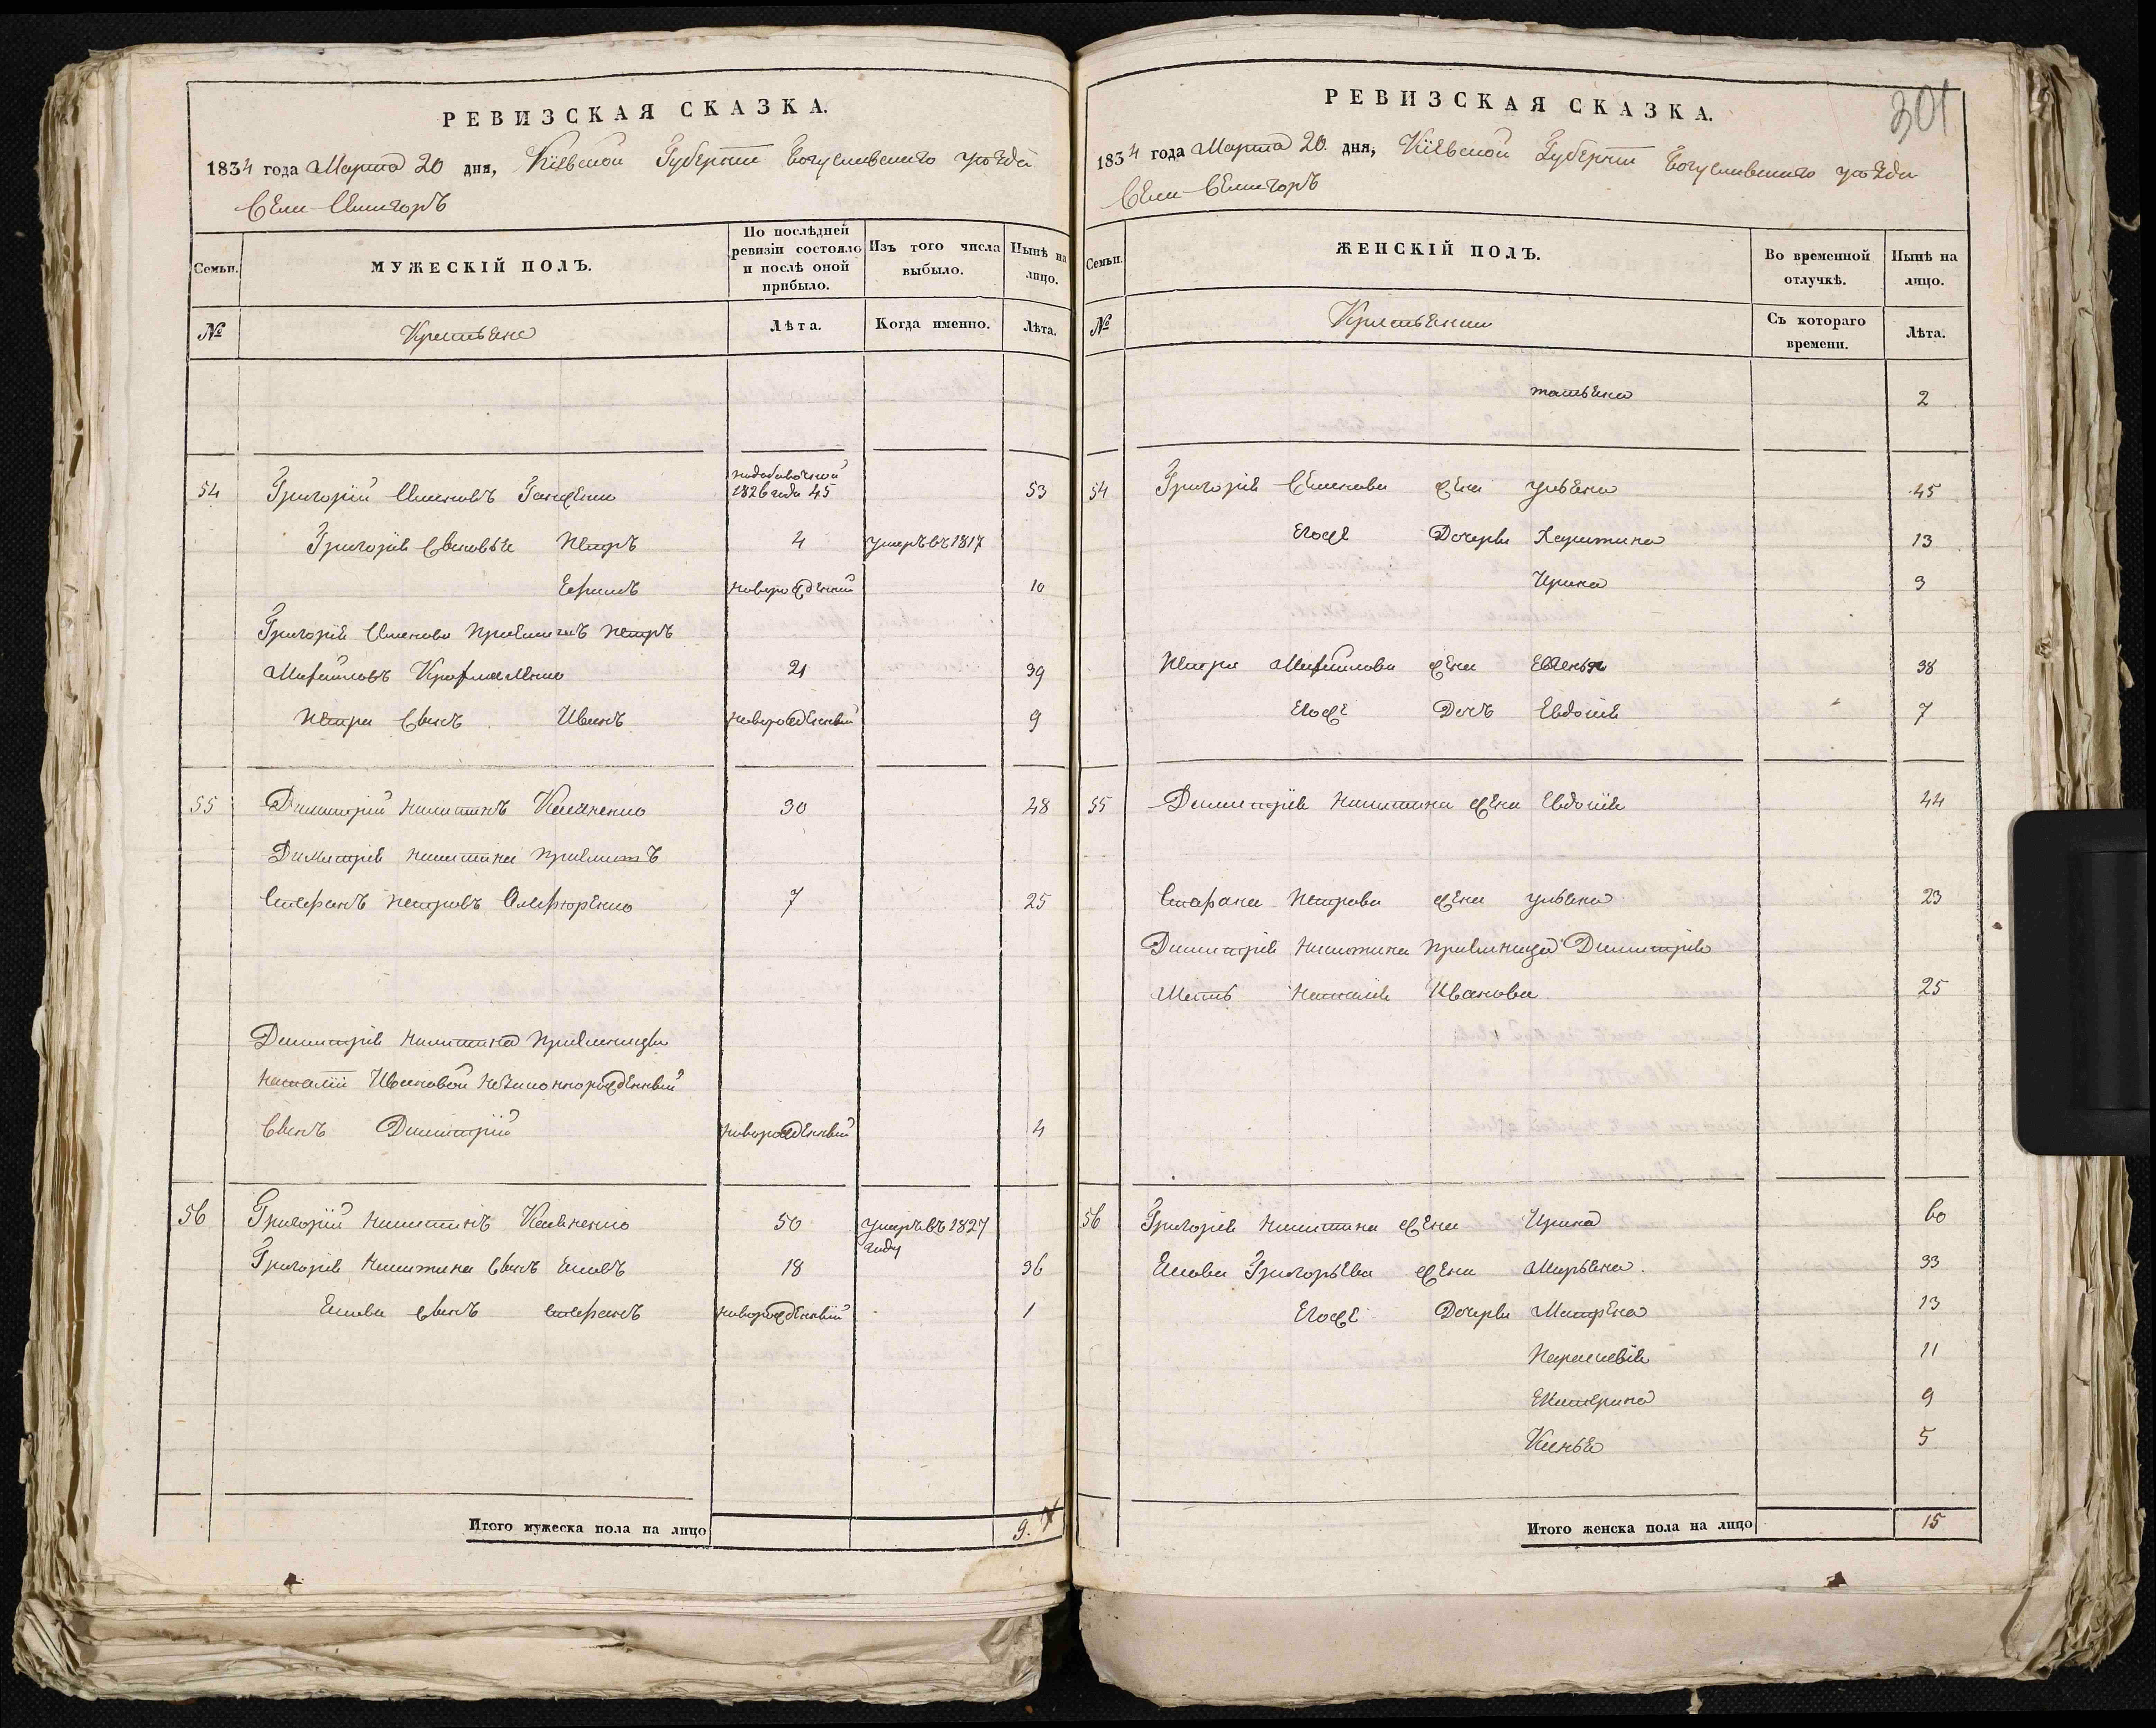 РЕВИЗСКАЯ СКАЗКА.
1834 года Марта 20 дня, Кіевской Губерніи Богуславскаго уѣзда
Села
Семьи.
МУЖЕСКІЙ ПОЛЪ.
По послѣдней ревизіи состояло и послѣ оной прибыло.
Изъ того числа выбыло.
Нынѣ на лицо.
№
Крестьяне
Лѣта.
Когда именно.
Лѣта.
54 Григорій Семеновъ 1826 года 45 53
Григорія Сыновья Петръ 4 умеръ въ 1817
Ефимъ новорожденный 10
Григорія Семенова Пріемышъ Петръ
Михайловъ 21 39
Петра Сынъ Иванъ новорожденный 9
55 Димитрій Никитинъ 30 48
Димитрія Никитина Пріемышъ
Стефанъ Петровъ 7 25
Димитрія Никитина Пріемницы
Наталіи Ивановой незаконнорожденный
Сынъ Димитрій новорожденный 4
56 Григорій Никитинъ 50 умеръ въ 1827 году
Григорія Никитина Сынъ 18 36
Сынъ Стефанъ новорожденный 1
Итого мужеска пола на лицо 9.
РЕВИЗСКАЯ СКАЗКА.
301
1834 года Марта 20. дня, Кіевской Губерніи Богуславскаго уѣзда
Села
Семьи.
ЖЕНСКІЙ ПОЛЪ.
Во временной отлучкѣ.
Нынѣ на лицо.
№
Крестьянки
Съ котораго времени.
Лѣта.
татьяна 2
54 Григорія Семенова жена ульяна 45
Егоже Дочери Харитина 13
Ирина 3
Петра Михайлова жена 38
Егоже Дочь Евдокія 7
55 Димитрія Никитина жена Евдокія 44
Стефана Петрова жена ульяна 23
Димитрія Никитина Пріемница Димитрія
Мать Наталія Иванова 25
56 Григорія Никитина жена Ирина 60
Григорьева жена Марьяна. 33
Егоже Дочери Матрена 13
Параскевія 11
Екатерина 9
5
Итого женска пола на лицо 15